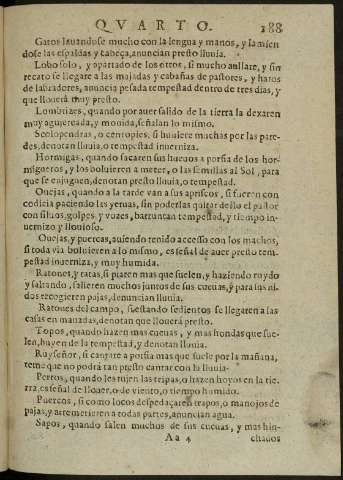 QVARTO. 188
Gatos lauandose mucho con la lengua y manos, y lamien
dose las espaldas y cabeça, anuncian presto lluuia.
Lobo solo, y apartado de los otros, si mucho aullare, y sin
recato se llegare a las majadas y cabañas de pastores, y hatos
de labradores, anuncia pesada tempestad dentro de tres dias, y
que llouerá muy presto.
Lombrizes, quando por auer salido de la tierra la dexaren
muy agujereada, y mouida, señalan lo mismo.
Scolopendras, o centopies, si huuiere muchas por las pare-
des, denotan lluuia, o tempestad inuerniza.
Hormigas, quando sacaren sus hueuos a porfia de los hor-
migueros, y los boluieren a meter, o las semillas al Sol, para
que se enjuguen, denotan presto lluuia, o tempestad.
Ouejas, quando a la tarde van a sus apriscos, si fueren con
codicia paciendo las yeruas, sin poderlas quitar dello el pastor
con siluos, golpes y vozes, barruntan tempestad, y tiempo in-
uernizo y llouioso.
Ouejas, y puercas, auiendo tenido accesso con los machos,
si toda via boluieren a lo mismo, es señal de auer presto tem-
pestad inuerniza, y muy humida.
Ratones, y ratas, si piaren mas que suelen, y haziendo ruydo
y saltando, salieren muchos juntos de sus cueuas, y para sus ni-
dos recogieren pajas, denuncian lluuia.
Ratones del campo, si estando sedientos se llegaren a las
casas en manadas, denotan que llouerá presto.
Topos, quando hazen mas cueuas, y mas hondas que sue-
len, huyen de la tempestad, y denotan lluuia.
Ruyseñor, si cantare a porfia mas que suele por la mañana,
teme que no podrá tan presto cantar con la lluuia.
Perros, quando les rujen las tripas, o hazen hoyos en la tie-
rra, es señal de llouer, o de viento, o tiempo humido.
Puercos, si como locos despedaçaren trapos, o manojos de
pajas, y arremetieren a todas partes, anuncian agua.
Sapos, quando salen muchos de sus cueuas, y mas hin-
Aa 4 chados